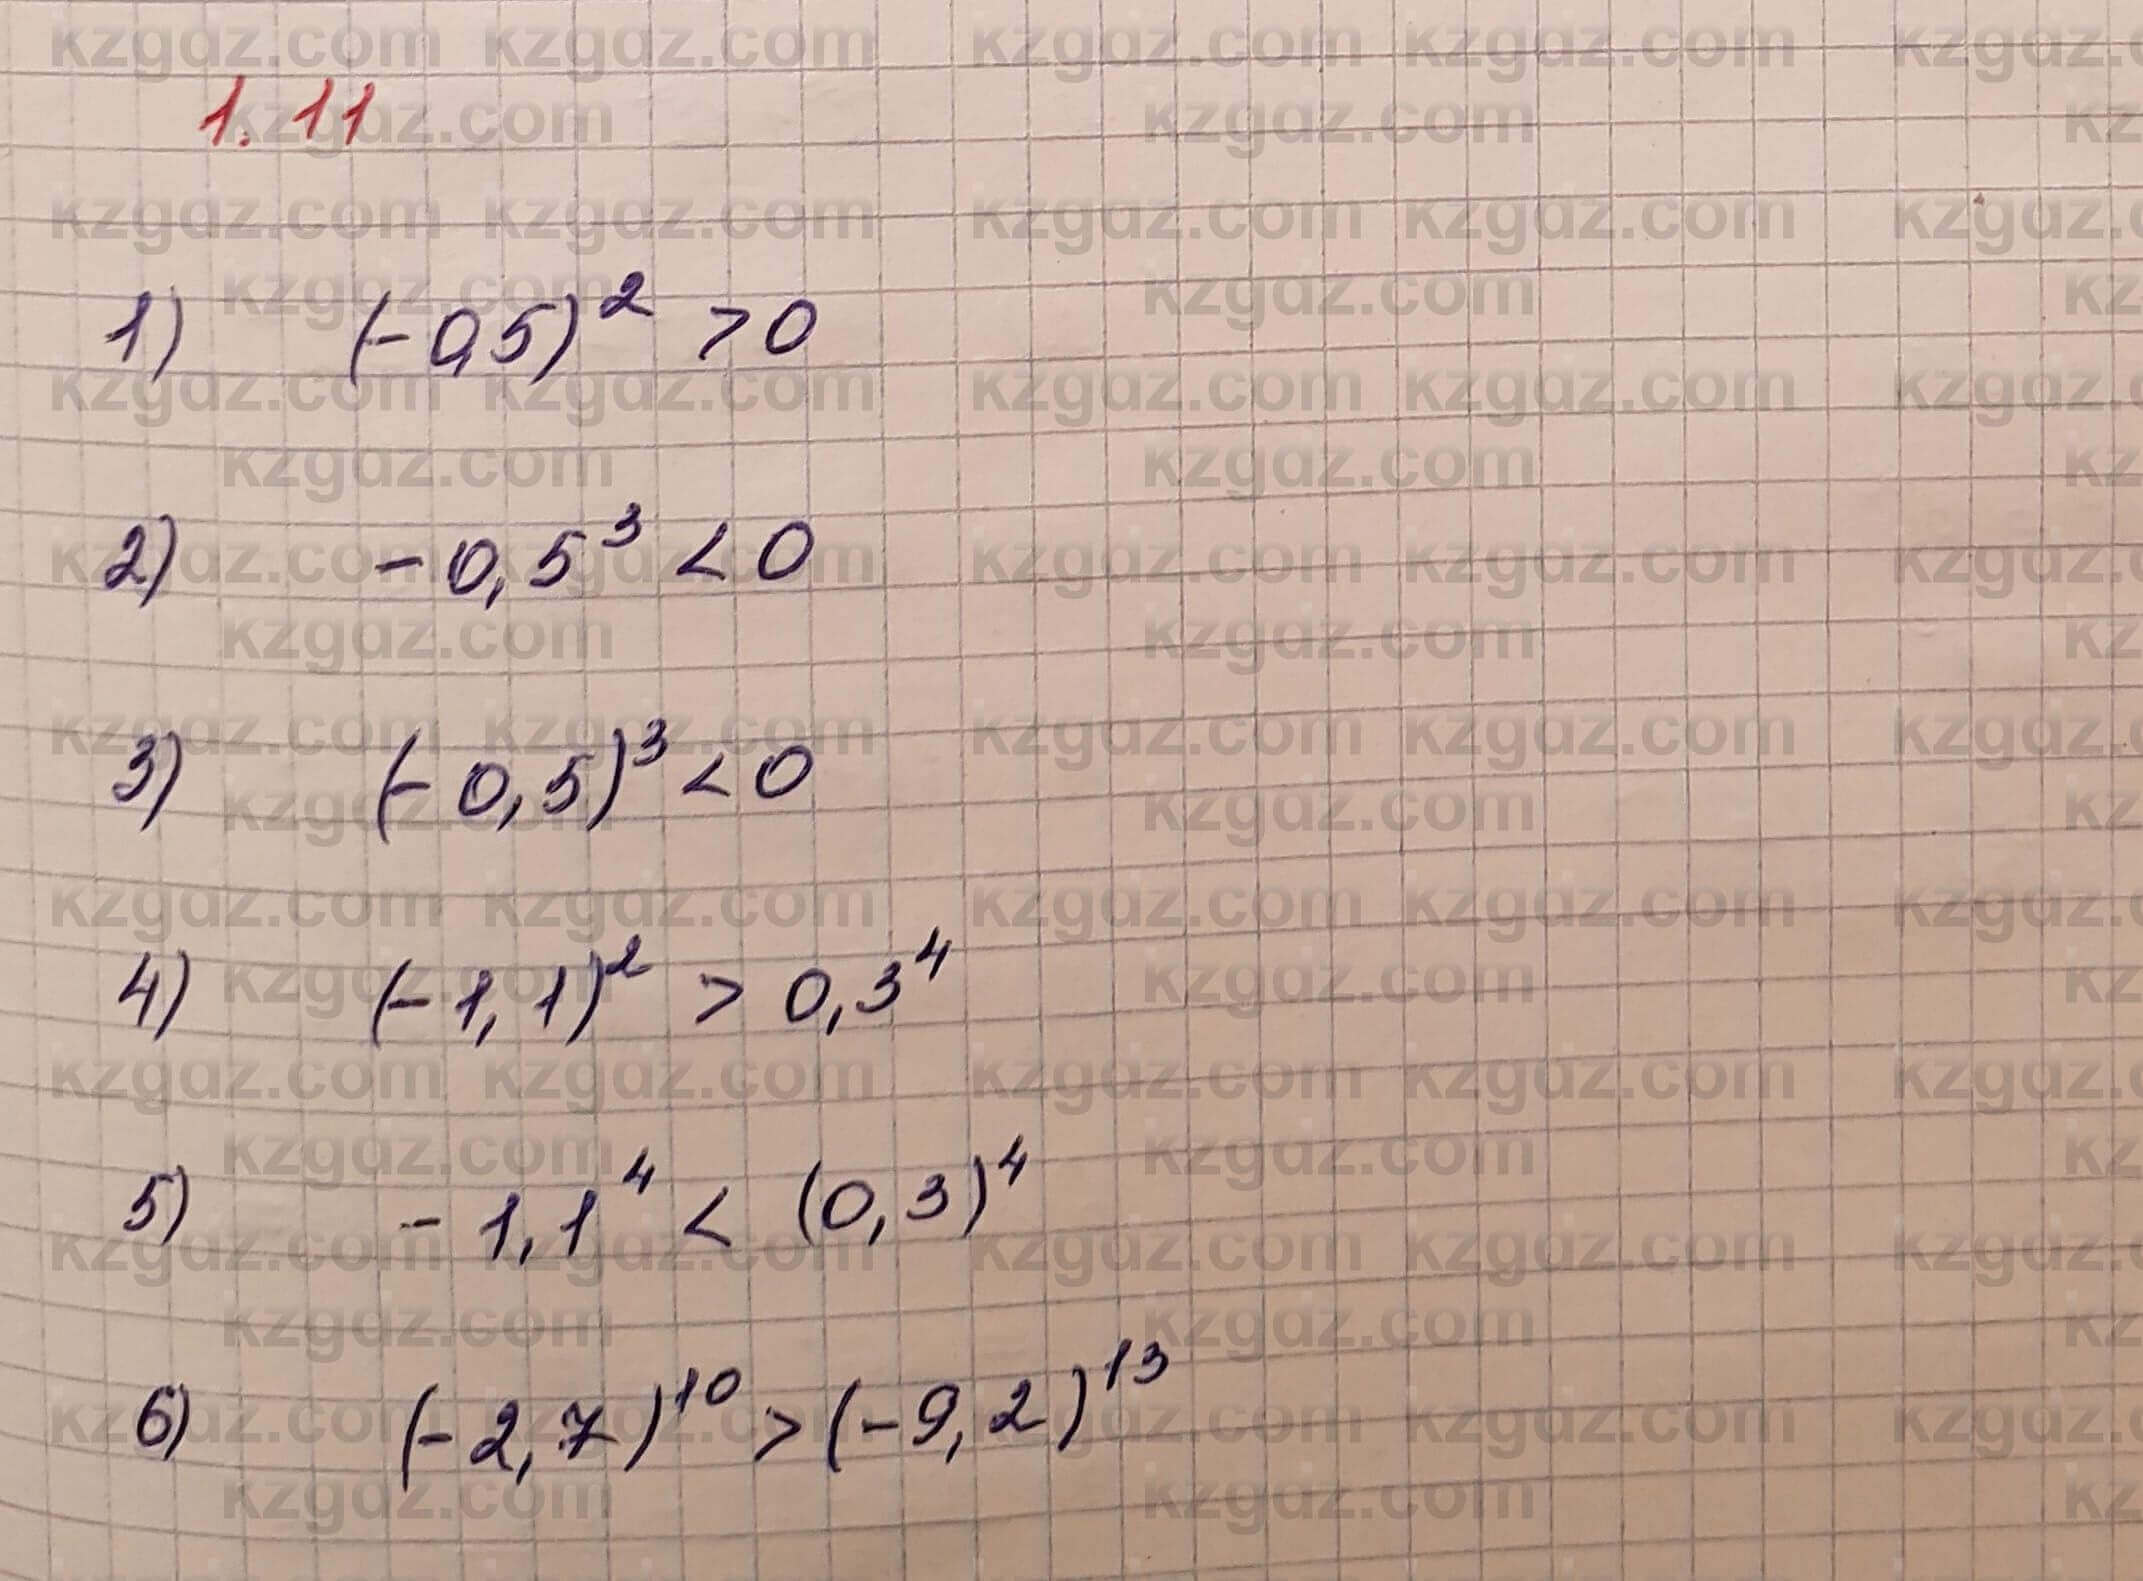 1.11
1) (-0,5)² >0
2) -0,5³ <0
3) (-0,5)³ <0
4) (-1,1)² > 0,3⁴
5) -1,1⁴ < (0,3)⁴
6) (-2,7)¹⁰ > (-9,2)¹³
kzgdz.com